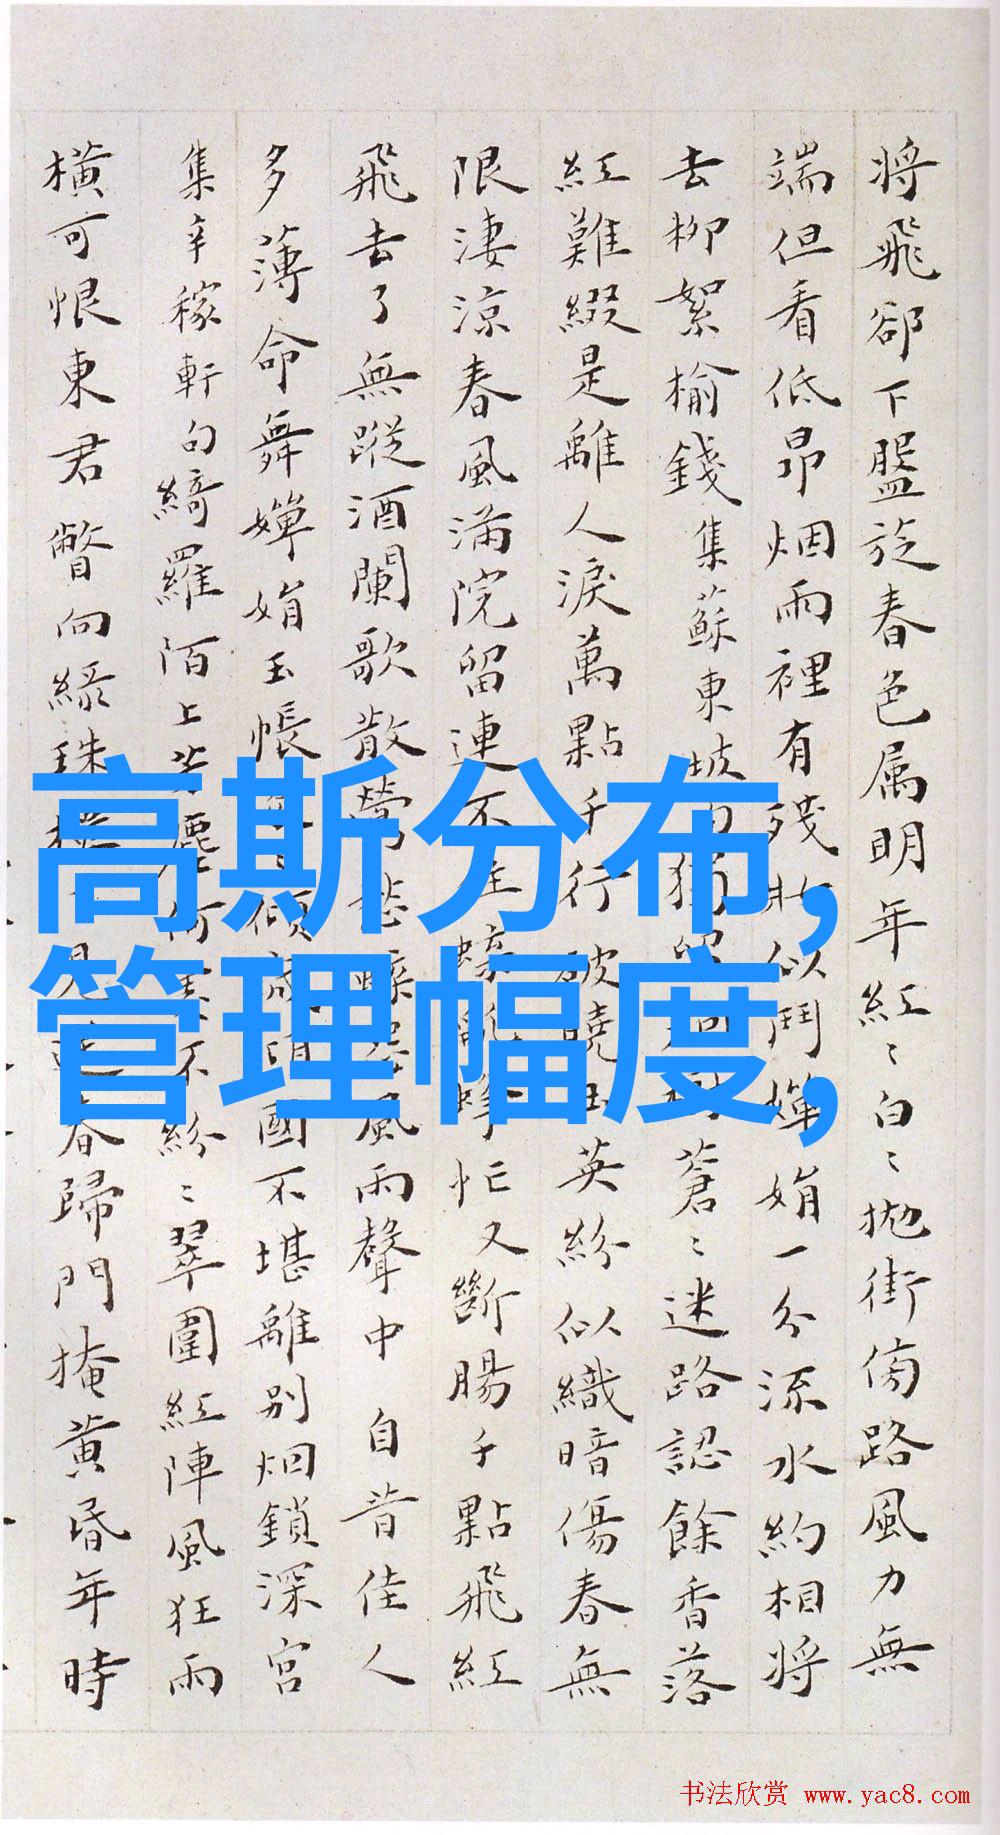 将飛卻下盤旋春色属明年紅〻白〻拋街傍路風力無
端但看低昂烟雨裡有殘妝似鬥嬋娟一分流水約相将
去柳絮榆錢集蘇東坡蒼〻迷路認餘香落
紅難綴是離人淚萬點千行破曉玉英紛似織暗傷春無
限淒涼春風滿院留連不住忙又斷腸千點飛紅
飛去了無蹤酒闌歌散鶯風雨聲中 自昔佳人
多薄命舞嬋娟玉帳國不堪離別烟鎖深宮
集辛稼軒句綺羅陌上不紛〻翠圍紅陣風狂雨
橫可恨東君瞥向綠珠見春歸門掩黃昏年時
高斯分布,
管理幅度,
书法欣赏 www.yac8.com